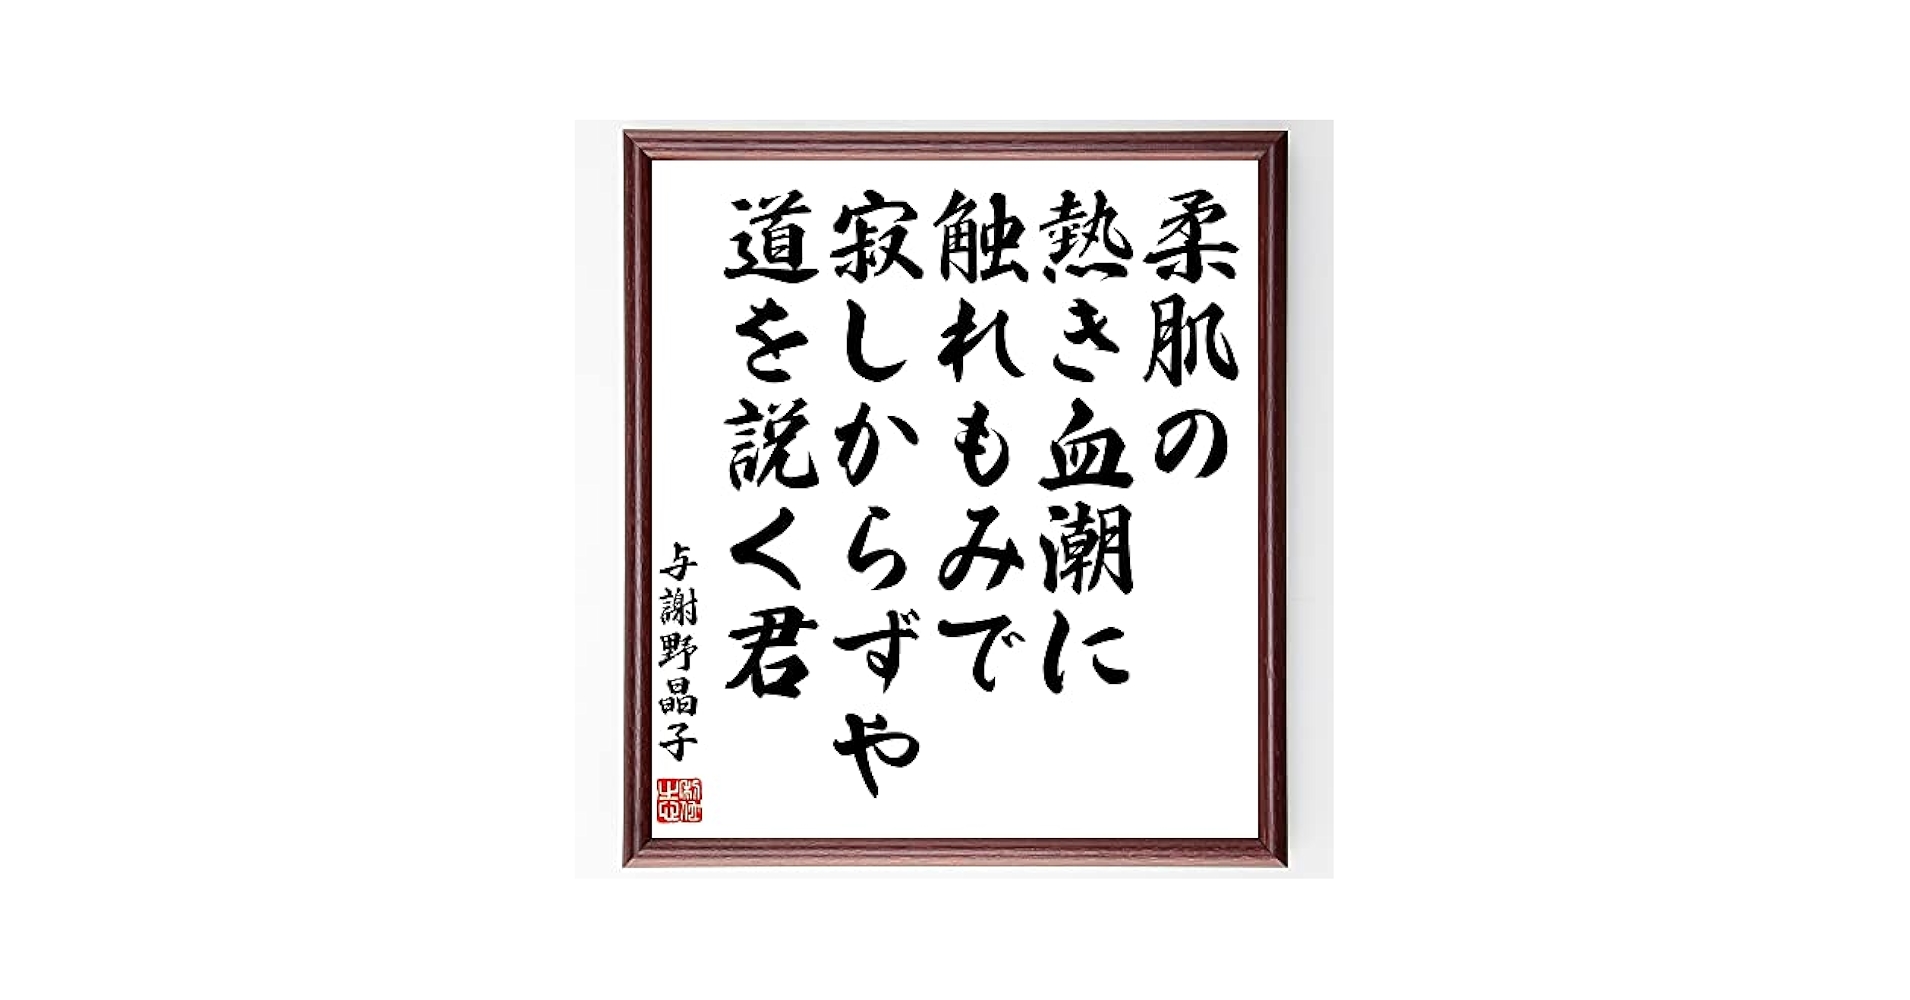 柔肌の
熱き血潮に
触れもみで
寂しからずや
道を説く君
与謝野晶子